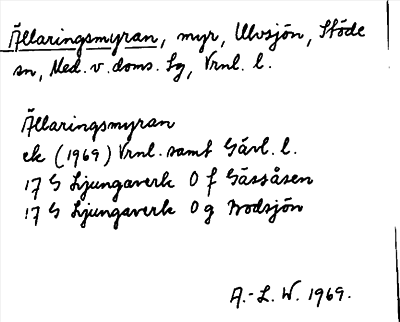 Ällaringsmyran, myr, Ulvsjön, Stöde
sn, Med. v. doms. Sg, Vrnl. l.
Ällaringsmyran
ek (1969) Vrnl. samt Gävl. l.
17 G Ljungaverk 0 f Gässåsen
17 G Ljungaverk 0 g Brodsjön
A.-L. W. 1969.